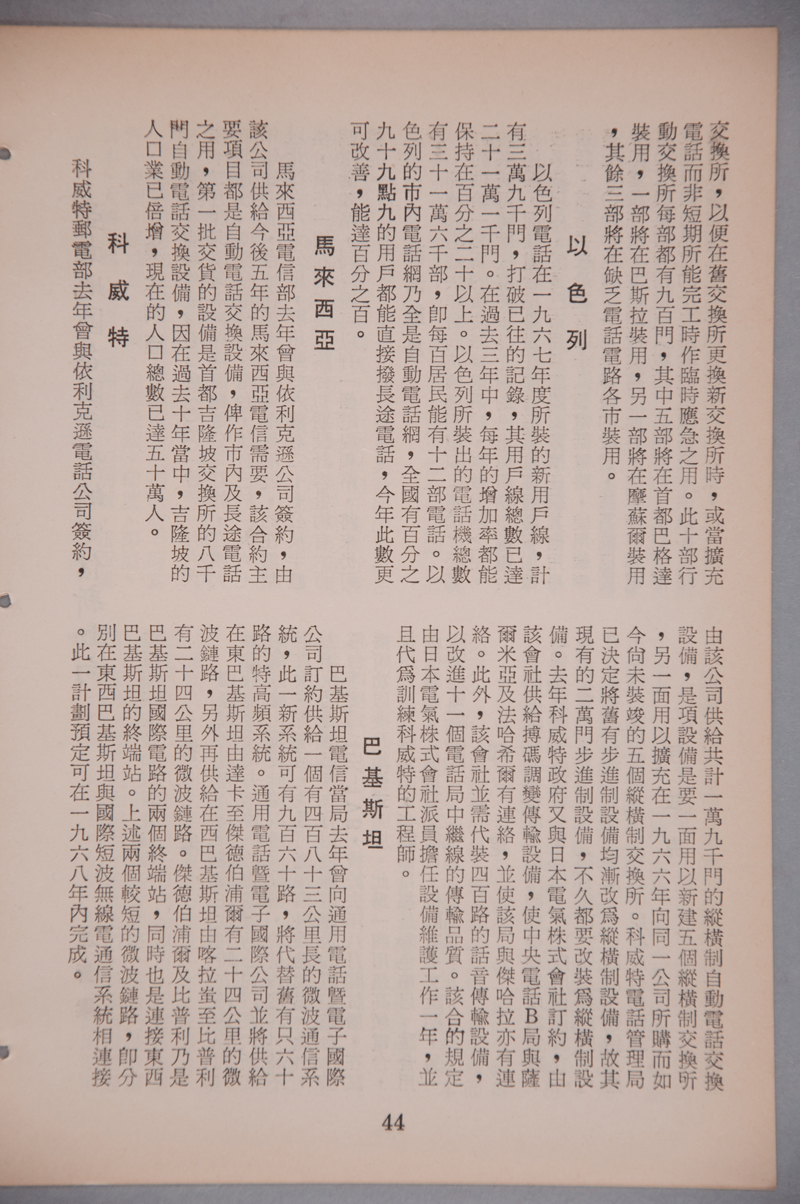 交換所，以便在舊交換所更換新交換所時，或當擴充
電話而非短期所能完工時作臨時應急之用。此十部行
動交換所每部都有九百門，其中五部將在首都巴格達
裝用，一部將在巴斯拉裝用，另一部將在摩蘇爾裝用
，其餘三部將在缺乏電話電路各市裝用。
以色列
以色列電話在一九六七年度所裝的新用戶線，計
有三萬九千門，打破已往的記錄，其用戶線總數已達
二十一萬一千門。在過去三年中，每年的增加率都能
保持在百分之二十以上。以色列所裝出的電話機總數
有三十一萬六千部，卽每百居民能有十二部電話。以
色列的市內電話網乃全是自動電話網，全國有百分之
九十九點九的用戶都能直接撥長途電話，今年此數更
可改善，能達百分之百。
馬來西亞
馬來西亞電信部去年曾與依利克遜公司簽約，由
該公司供給今後五年的馬來西亞電信需要，該合約主
要項目都是自動電話交換設備，俾作市內及長途電話
之用，第一批交貨的設備是首都吉隆坡交換所的八千
門自動電話交換設備，因在過去十年當中，吉隆坡的
人口業已倍增，現在的人口總數已達五十萬人。
科威特
科威特郵電部去年曾與依利克遜電話公司簽約，
由該公司供給共計一萬九千門的縱橫制自動電話交換
設備，是項設備是要一面用以新建五個縱橫制交換所
，另一面用以擴充在一九六六年向同一公司所購而如
今尙未裝竣的五個縱橫制交換所。科威特電話管理局
已決定將舊有步進制設備均漸改爲縱橫制設備，故其
現有的二萬門步進制設備，不久都要改裝爲縱橫制設
備。去年科威特政府又與日本電氣株式會社訂約，由
該會社供給搏碼調變傳輸設備，使中央電話B局與薩
爾米亞及法哈希爾有連絡，並使該局與傑哈拉亦有連
絡。此外，該會社並需代裝四百路的話音傳輸設備，
以改進十一個電話局中繼線的傳輸品質。該合約規定
由日本電氣株式會社派員擔任設備維護工作一年，並
且代爲訓練科威特的工程師。
巴基斯坦
巴基斯坦電信當局去年曾向通用電話暨電子國際
公司訂約供給一個有四百八十三公里長的微波通信系
統，此一新系統可有九百六十路，將代替舊有只六十
路的特高頻系統。通用電話暨電子國際公司並將供給
在東巴基斯坦由達卡至傑德伯浦爾有二十四公里的微
波鏈路，另外再供給在西巴基斯坦由喀拉蚩至比普利
有二十四公里的微波鏈路。傑德伯浦爾及比普利乃是
巴基斯坦國際電路的兩個終端站，同時也是連接東西
巴基斯坦的終端站。上述兩個較短的微波鏈路，卽分
別在東西巴基斯坦與國際短波無線電通信系統相連接
。此一計劃預定可在一九六八年內完成。
44